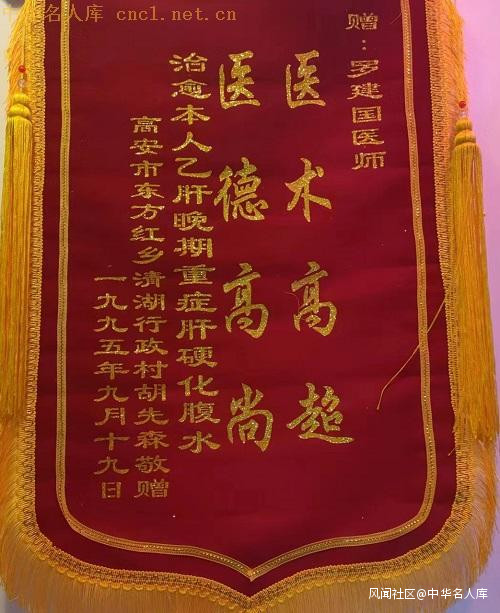 中华名人库 cnc1.net.cn
赠：罗建国医师
医术高超
医德高尚
治愈本人乙肝晚期重症肝硬化腹水
高安市东方红乡清湖行政村胡先森敬赠
一九九五年九月十九日
风闻社区@中华名人库